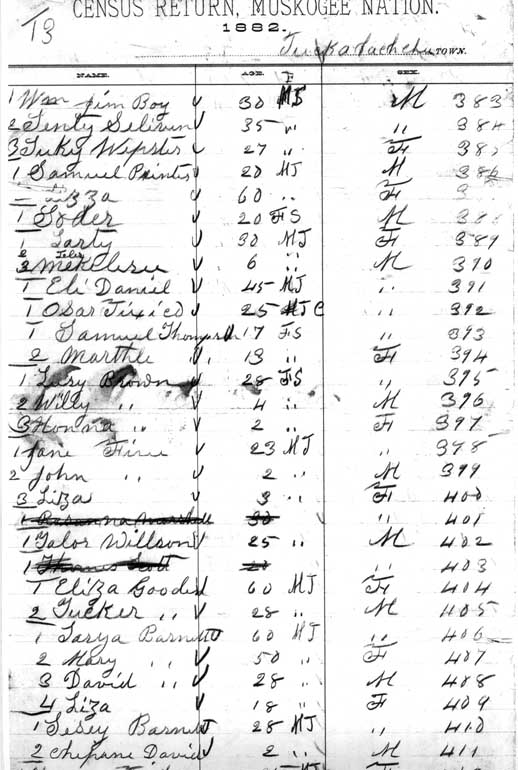 13
CENSUS RETURN, MUSKOGEE NATION.
1882.
Tuckabachchu TOWN.
NAME. AGE. SEX.
1 Wm Jim Boy √ 30 MJ M 383
2 Senty Seliven √ 35 " " 384
3 Suky Wepster √ 27 " F 385
1 Samuel Printis 20 MJ M 386
60 " F
1 Soder √ 20 FS M
1 Sarty √ 30 MJ F 389
√ 6 " M 390
1 Eli Daniel √ 45 MJ " 391
1 Osar √ 25 MJ C " 392
1 Samuel Thomas 17 FS " 393
2 Marthe √ 13 " F 394
1 Lusy Brown √ 28 FS " 395
2 Willy " √ 4 " M 396
3 Honna " √ 2 " F 397
1 Jane √ 23 MJ " 398
2 John " √ 2 " M 399
3 Liza √ 3 " F 400
1 Rosanna Marshall 30 " 401
1 Talor Willson √ 25 " M 402
1 Thomas Scott 403
1 Eliza Gooden 60 MJ F 404
2 Tucker " √ 28 " M 405
1 Sarya Barnett 60 MJ " 406
2 Mary " √ 50 " F 407
3 David " √ 28 " M 408
4 Liza √ 18 " F 409
1 Sesey Barnett 28 MJ " 410
2 Chepane David √ 2 " M 411